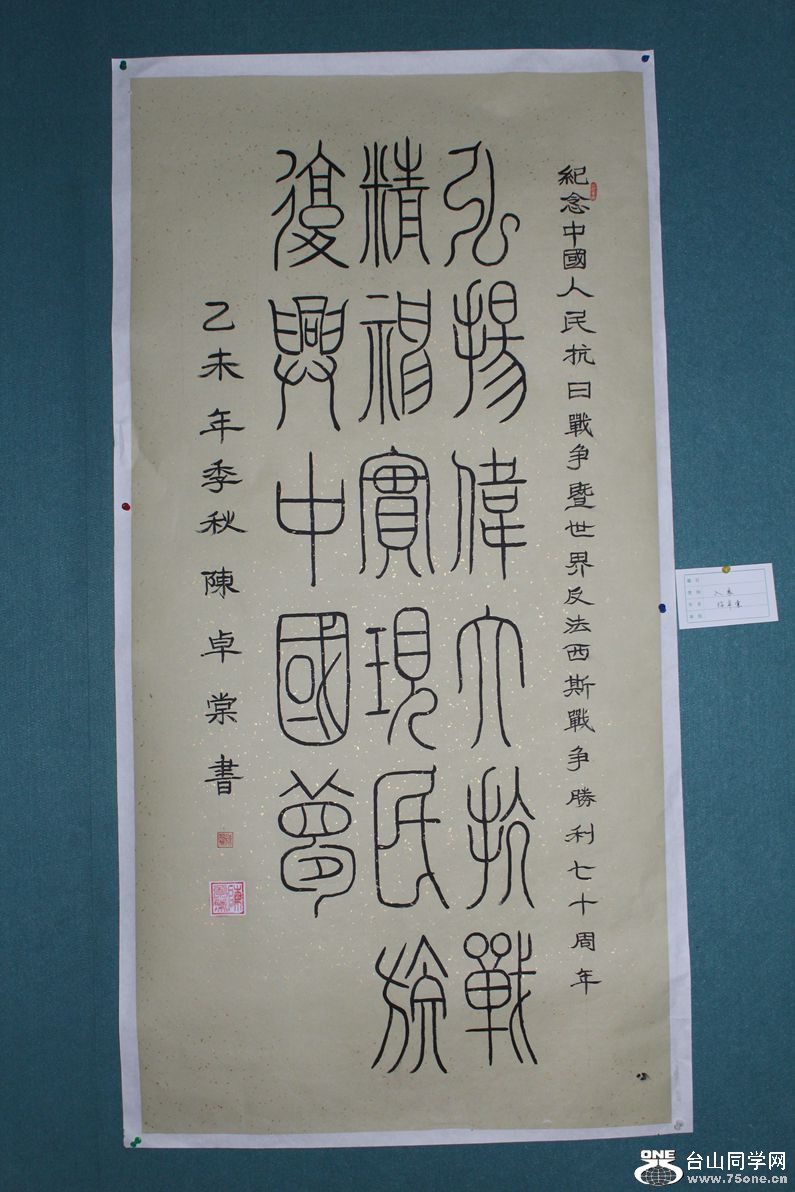 紀念中國人民抗日戰争暨世界反法西斯戰争勝利七十周年
弘揚偉大抗戰
精神實現民族
復興中國夢
乙未年季秋陳卓棠書
ONE
台山同学网
www.75one.cn